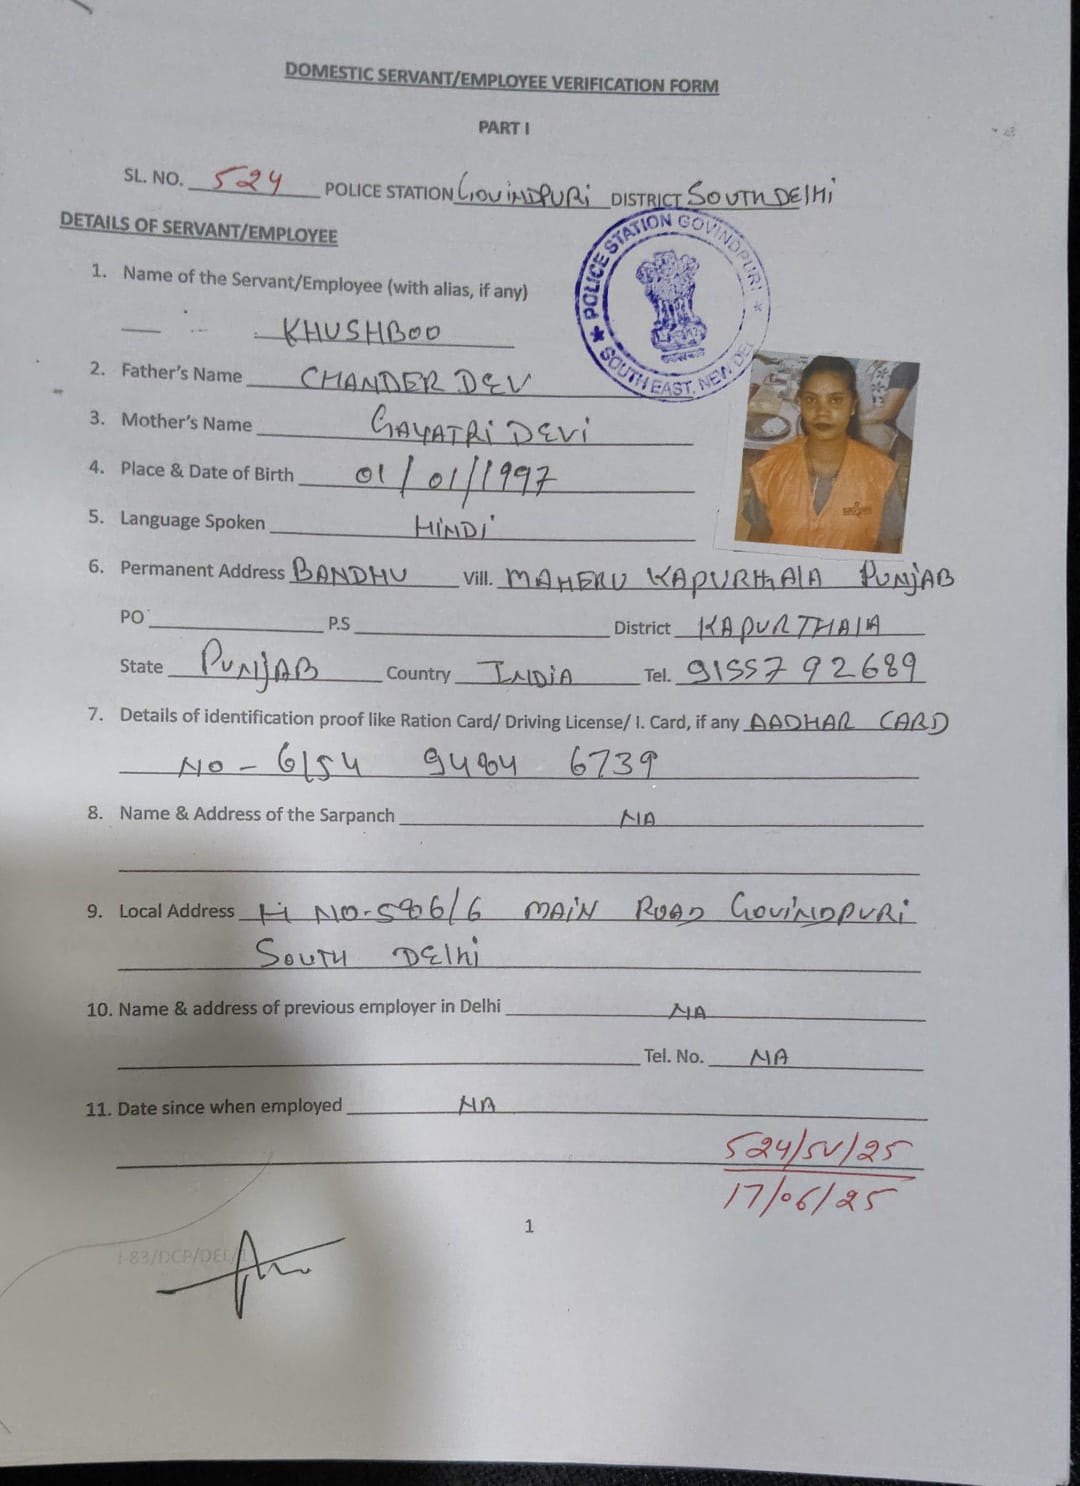 DOMESTIC SERVANT/EMPLOYEE VERIFICATION FORM
PART I
SL. NO. 524 POLICE STATION GOVINDPURI DISTRICT SOUTH DELHI
DETAILS OF SERVANT/EMPLOYEE
★ POLICE STATION GOVINDPURI ★
SOUTH EAST, NEW DEL
1. Name of the Servant/Employee (with alias, if any)
KHUSHBOO
2. Father's Name CHANDER DEV
3. Mother's Name GAYATRI DEVI
4. Place & Date of Birth 01/01/1997
5. Language Spoken HINDI
6. Permanent Address BANDHU Vill. MAHERU KAPURTHALA PUNJAB
PO P.S District KAPURTHALA
State PUNJAB Country INDIA Tel. 9155792689
7. Details of identification proof like Ration Card/ Driving License/ I. Card, if any AADHAR CARD
NO - 6154 9484 6739
8. Name & Address of the Sarpanch NA
9. Local Address H NO- MAIN ROAD GOVINDPURI
SOUTH DELHI
10. Name & address of previous employer in Delhi NA
Tel. No. NA
11. Date since when employed NA
524/SV/25
17/06/25
1